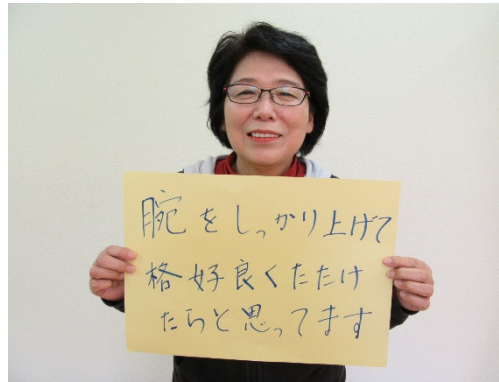 腕をしっかり上げて
格好良くたたけ
たらと思ってます